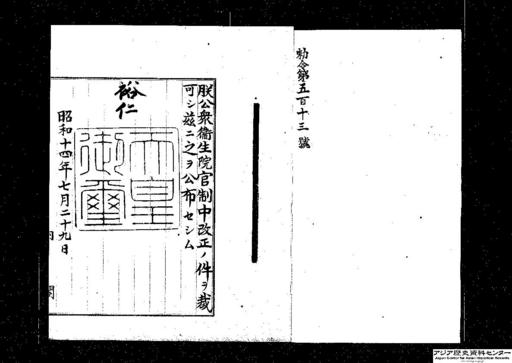 勅令第五百十三號
朕公衆衞生院官制中改正ノ件ヲ裁
可シ茲ニ之ヲ公布セシム
裕仁
天皇
御璽
昭和十四年七月二十九日
内
閣
アジア歴史資料センター
Japan Center for Asian Historical Records